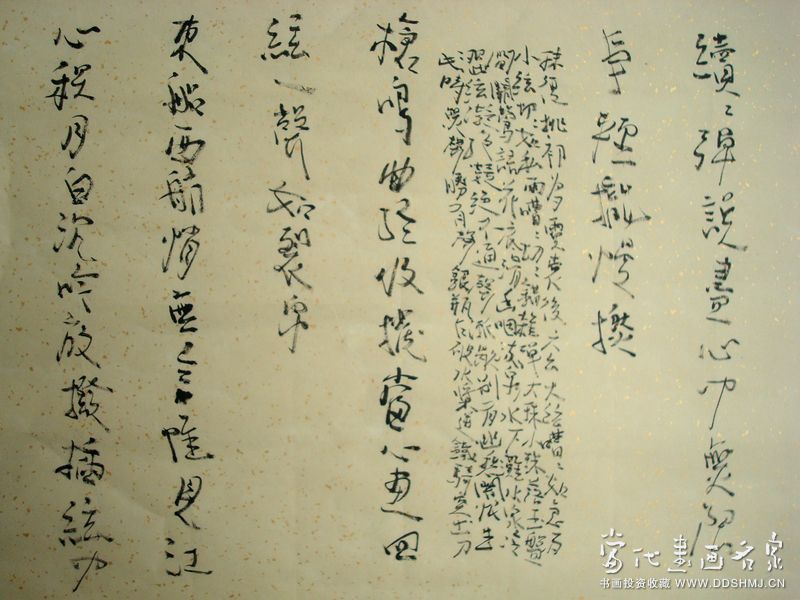 續〻彈說盡心中無限
事輕攏慢撚
抹復挑初為霓裳後六幺大絃嘈〻如急雨
小絃切〻如私語嘈〻切〻錯雜彈大珠小珠落玉盤
間關鶯語花底滑幽咽流泉水下難水泉冷
澀絃凝絕凝絕不通聲漸歇別有幽愁闇恨生
此時無聲勝有聲銀瓶乍破水漿迸鐵騎突出刀
槍鳴曲終收撥當心畫四
絃一聲如裂帛
東船西舫悄無言唯見江
心秋月白沉吟放撥插絃中
當代書畫名家
书画投资收藏 WWW.DDSHMJ.CN